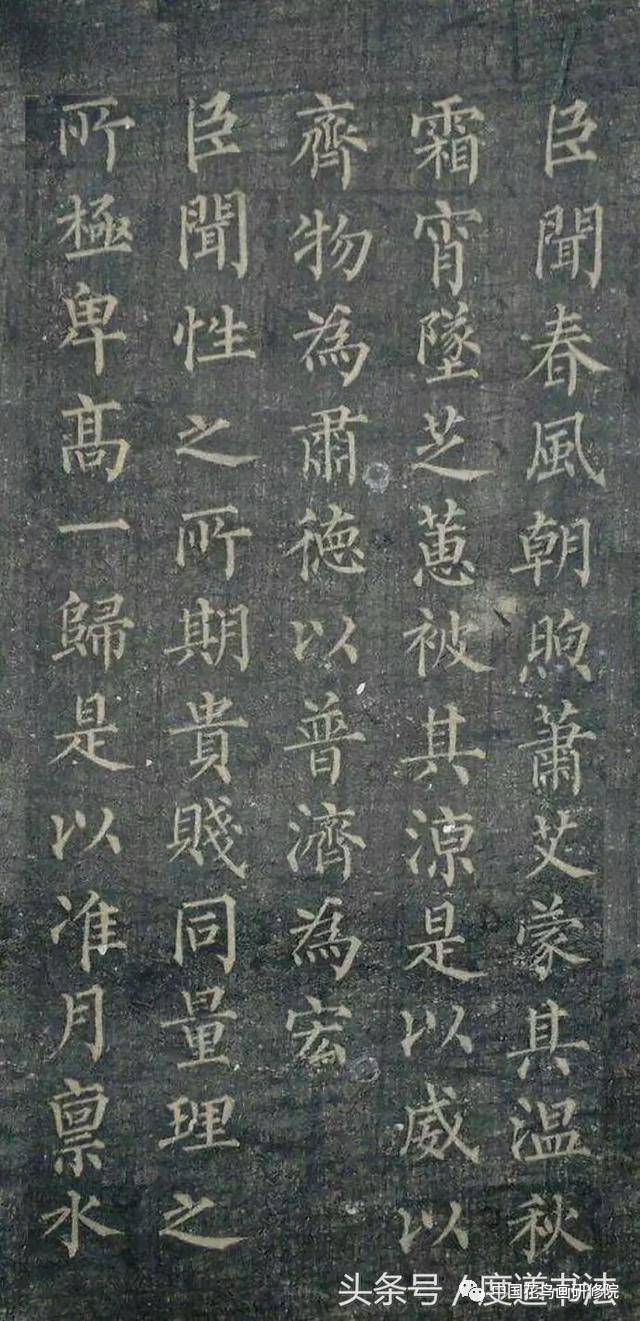 臣聞春風朝煦蕭艾蒙其溫秋
霜宵墜芝蕙被其涼是以威以
齊物為肅德以普濟為宏
臣聞性之所期貴賤同量理之
所極卑高一歸是以准月禀水
头条号 / 度道书法
中国花鸟画研修院